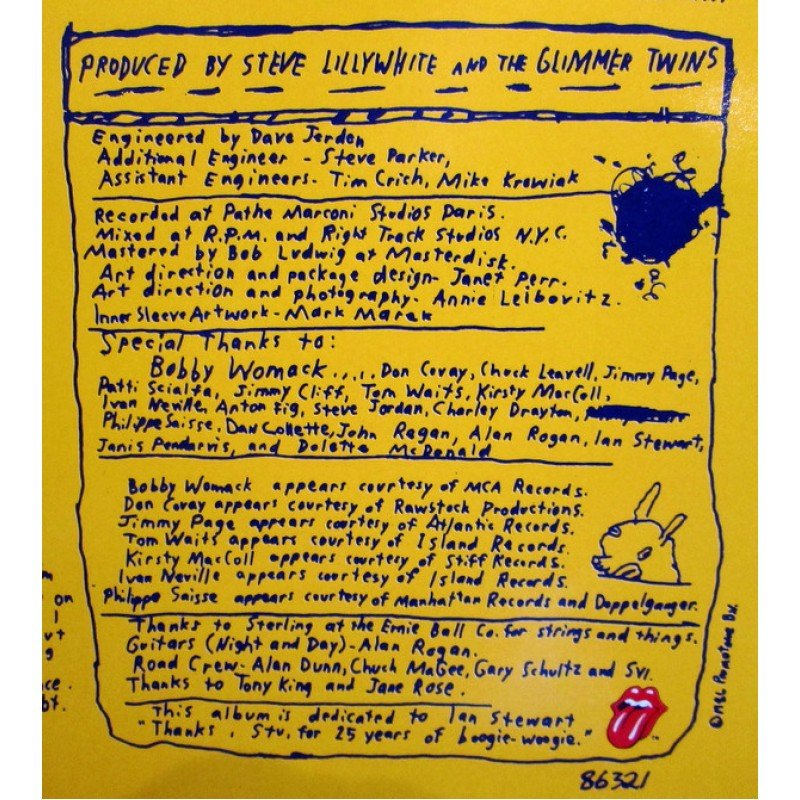 PRODUCED BY STEVE LILLYWHITE AND THE GLIMMER TWINS
Engineered by Dave Jerden
Additional Engineer - Steve Parker,
Assistant Engineers- Tim Crich, Mike Krowiak
Recorded at Pathe Marconi Studios Paris.
Mixed at R.P.M. and Right Track Studios N.Y.C.
Mastered by Bob Ludwig at Masterdisk.
Art direction and package design- Janet Perr.
Art direction and photography- Annie Leibovitz.
Inner Sleeve Artwork - Mark Marek
Special Thanks to:
Bobby Womack ..... Don Covay, Chuck Leavell, Jimmy Page,
Patti Scialfa, Jimmy Cliff, Tom Waits, Kirsty MacColl,
Ivan Neville, Anton Fig, Steve Jordan, Charley Drayton,
Philippe Saisse, Dan Collette, John Regan, Alan Rogan, Ian Stewart,
Janis Pendarvis, and Dolette McDonald
Bobby Womack appears courtesy of MCA Records.
Don Covay appears courtesy of Rawstock Productions.
Jimmy Page appears courtesy of Atlantic Records.
Tom Waits appears courtesy of Island Records.
Kirsty MacColl appears courtesy of Stiff Records.
Ivan Neville appears courtesy of Island Records.
Philippe Saisse appears courtesy of Manhattan Records and Doppelganger.
Thanks to Sterling at the Ernie Ball Co. for strings and things.
Guitars (Night and Day)- Alan Rogan.
Road Crew- Alan Dunn, Chuck MaGee, Gary Schultz and Svi.
Thanks to Tony King and Jane Rose.
This album is dedicated to Ian Stewart
"Thanks, Stu. for 25 years of boogie-woogie."
©1986 Promotone B.V.
86321
on